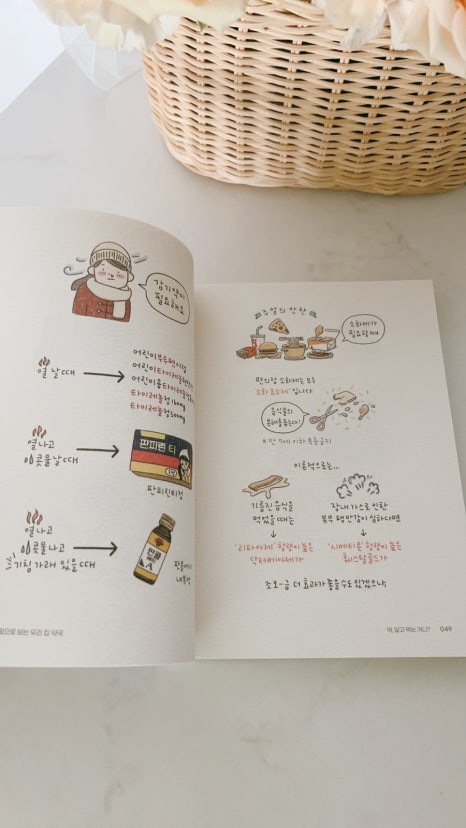 감기약이
필요해요
열 날 때
어린이부루펜시럽
어린이타이레놀
어린이용타이레놀
타이레놀정160mg
타이레놀정500mg
열나고
콧물날때
판피린 티
판피린티정
열나고
콧물나고
기침가래 있을때
판콜에이
내복액
보는 우리 집 약국
주말의 만찬
소화제가
필요할때
편의점 소화제는 모두
'소화효소제'입니다.
음식물의
분해를 돕는다!
* 만 7세 이하 복용금지
이론적으로는...
기름진 음식을
먹었을 때는
'리파아제' 함량이 높은
닥터베아제가
장내 가스로 인한
복부 팽만감이 심하다면
'시메티콘' 함량이 높은
훼스탈골드가
조오-금 더 효과가 좋을수도 있겠으나,
약, 알고 먹는 거니?
049